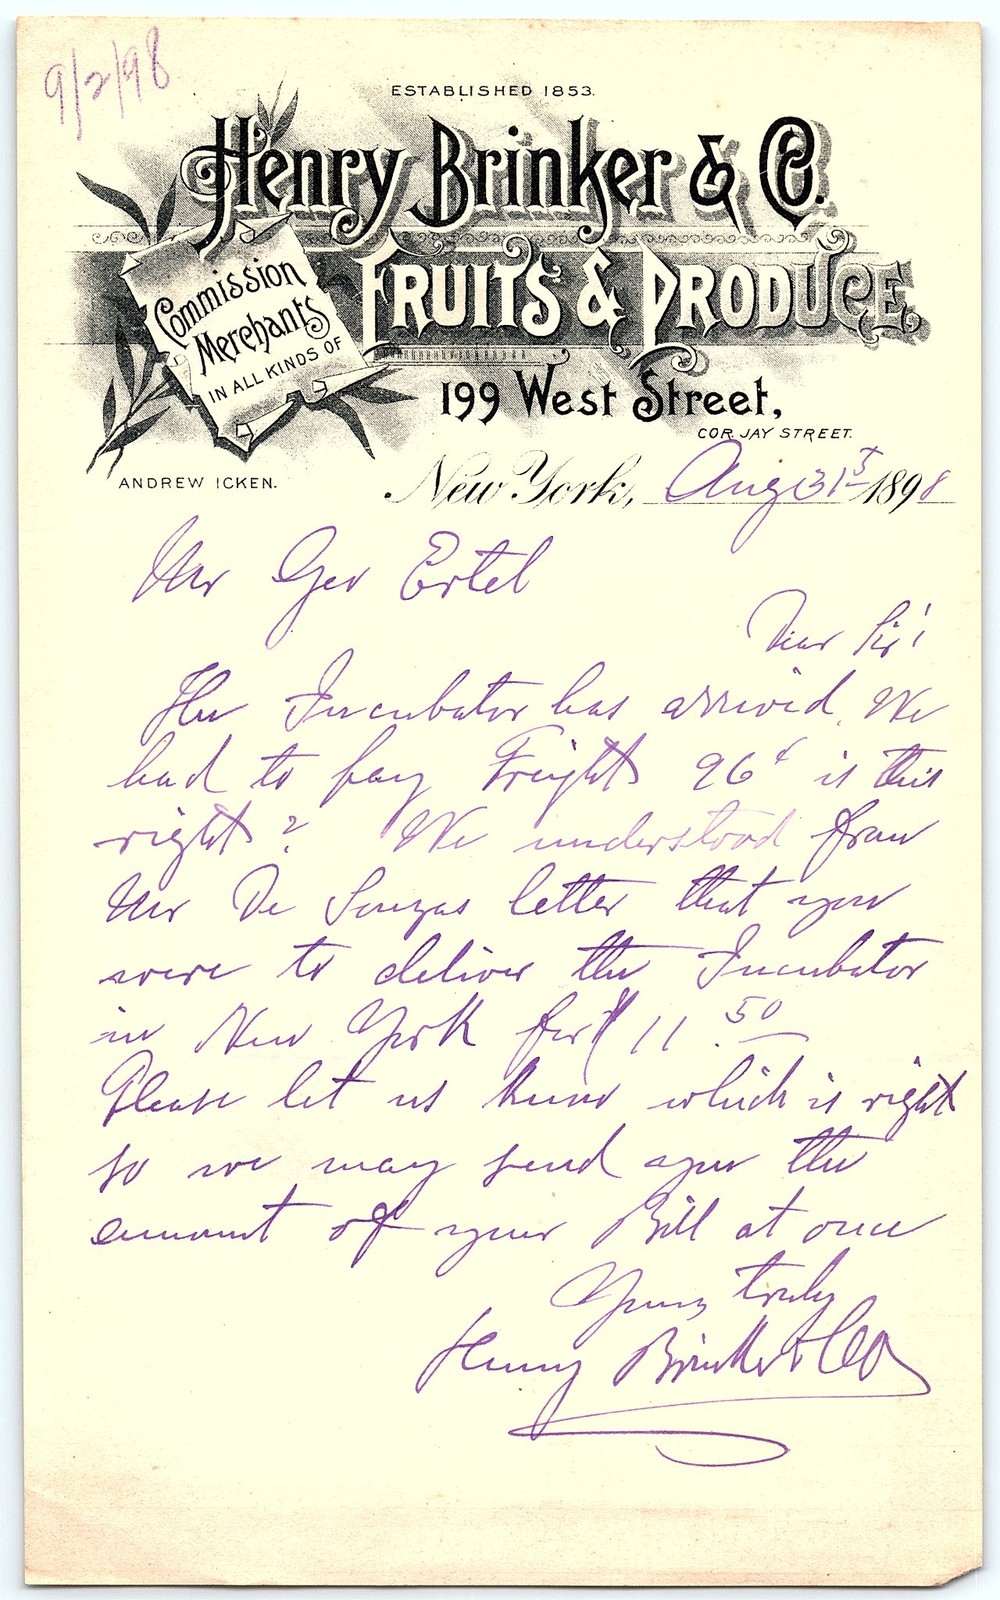 9/2/98
ESTABLISHED 1853.
Henry Brinker & Co.
Commission
Merchants
IN ALL KINDS OF
FRUITS & PRODUCE.
199 West Street,
COR. JAY STREET.
ANDREW ICKEN.
New York, Aug 31st 1898
Mr Geo Ertel
Dear Sir!
The Incubator has arrived. We
had to pay Freight 96¢ is this
right? We understood from
Mr De Souzas letter that you
were to deliver the Incubator
in New York for $11.50
Please let us know which is right
so we may send you the
amount of your Bill at once
Yours truly
Henry Brinker & Co